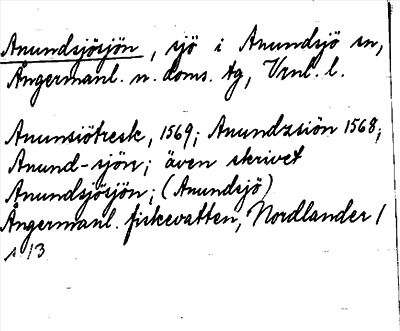 Anundsjösjön, sjö i Anundsjö sn,
Ångermanl. n. doms. tg, Vrnl. l.
Anunsiötresk, 1569; Anundzsiön 1568;
Anund-sjön; även skrivet
Anundsjösjön; (Anundsjö)
Ångermanl. fiskevatten, Nordlander /
s 13